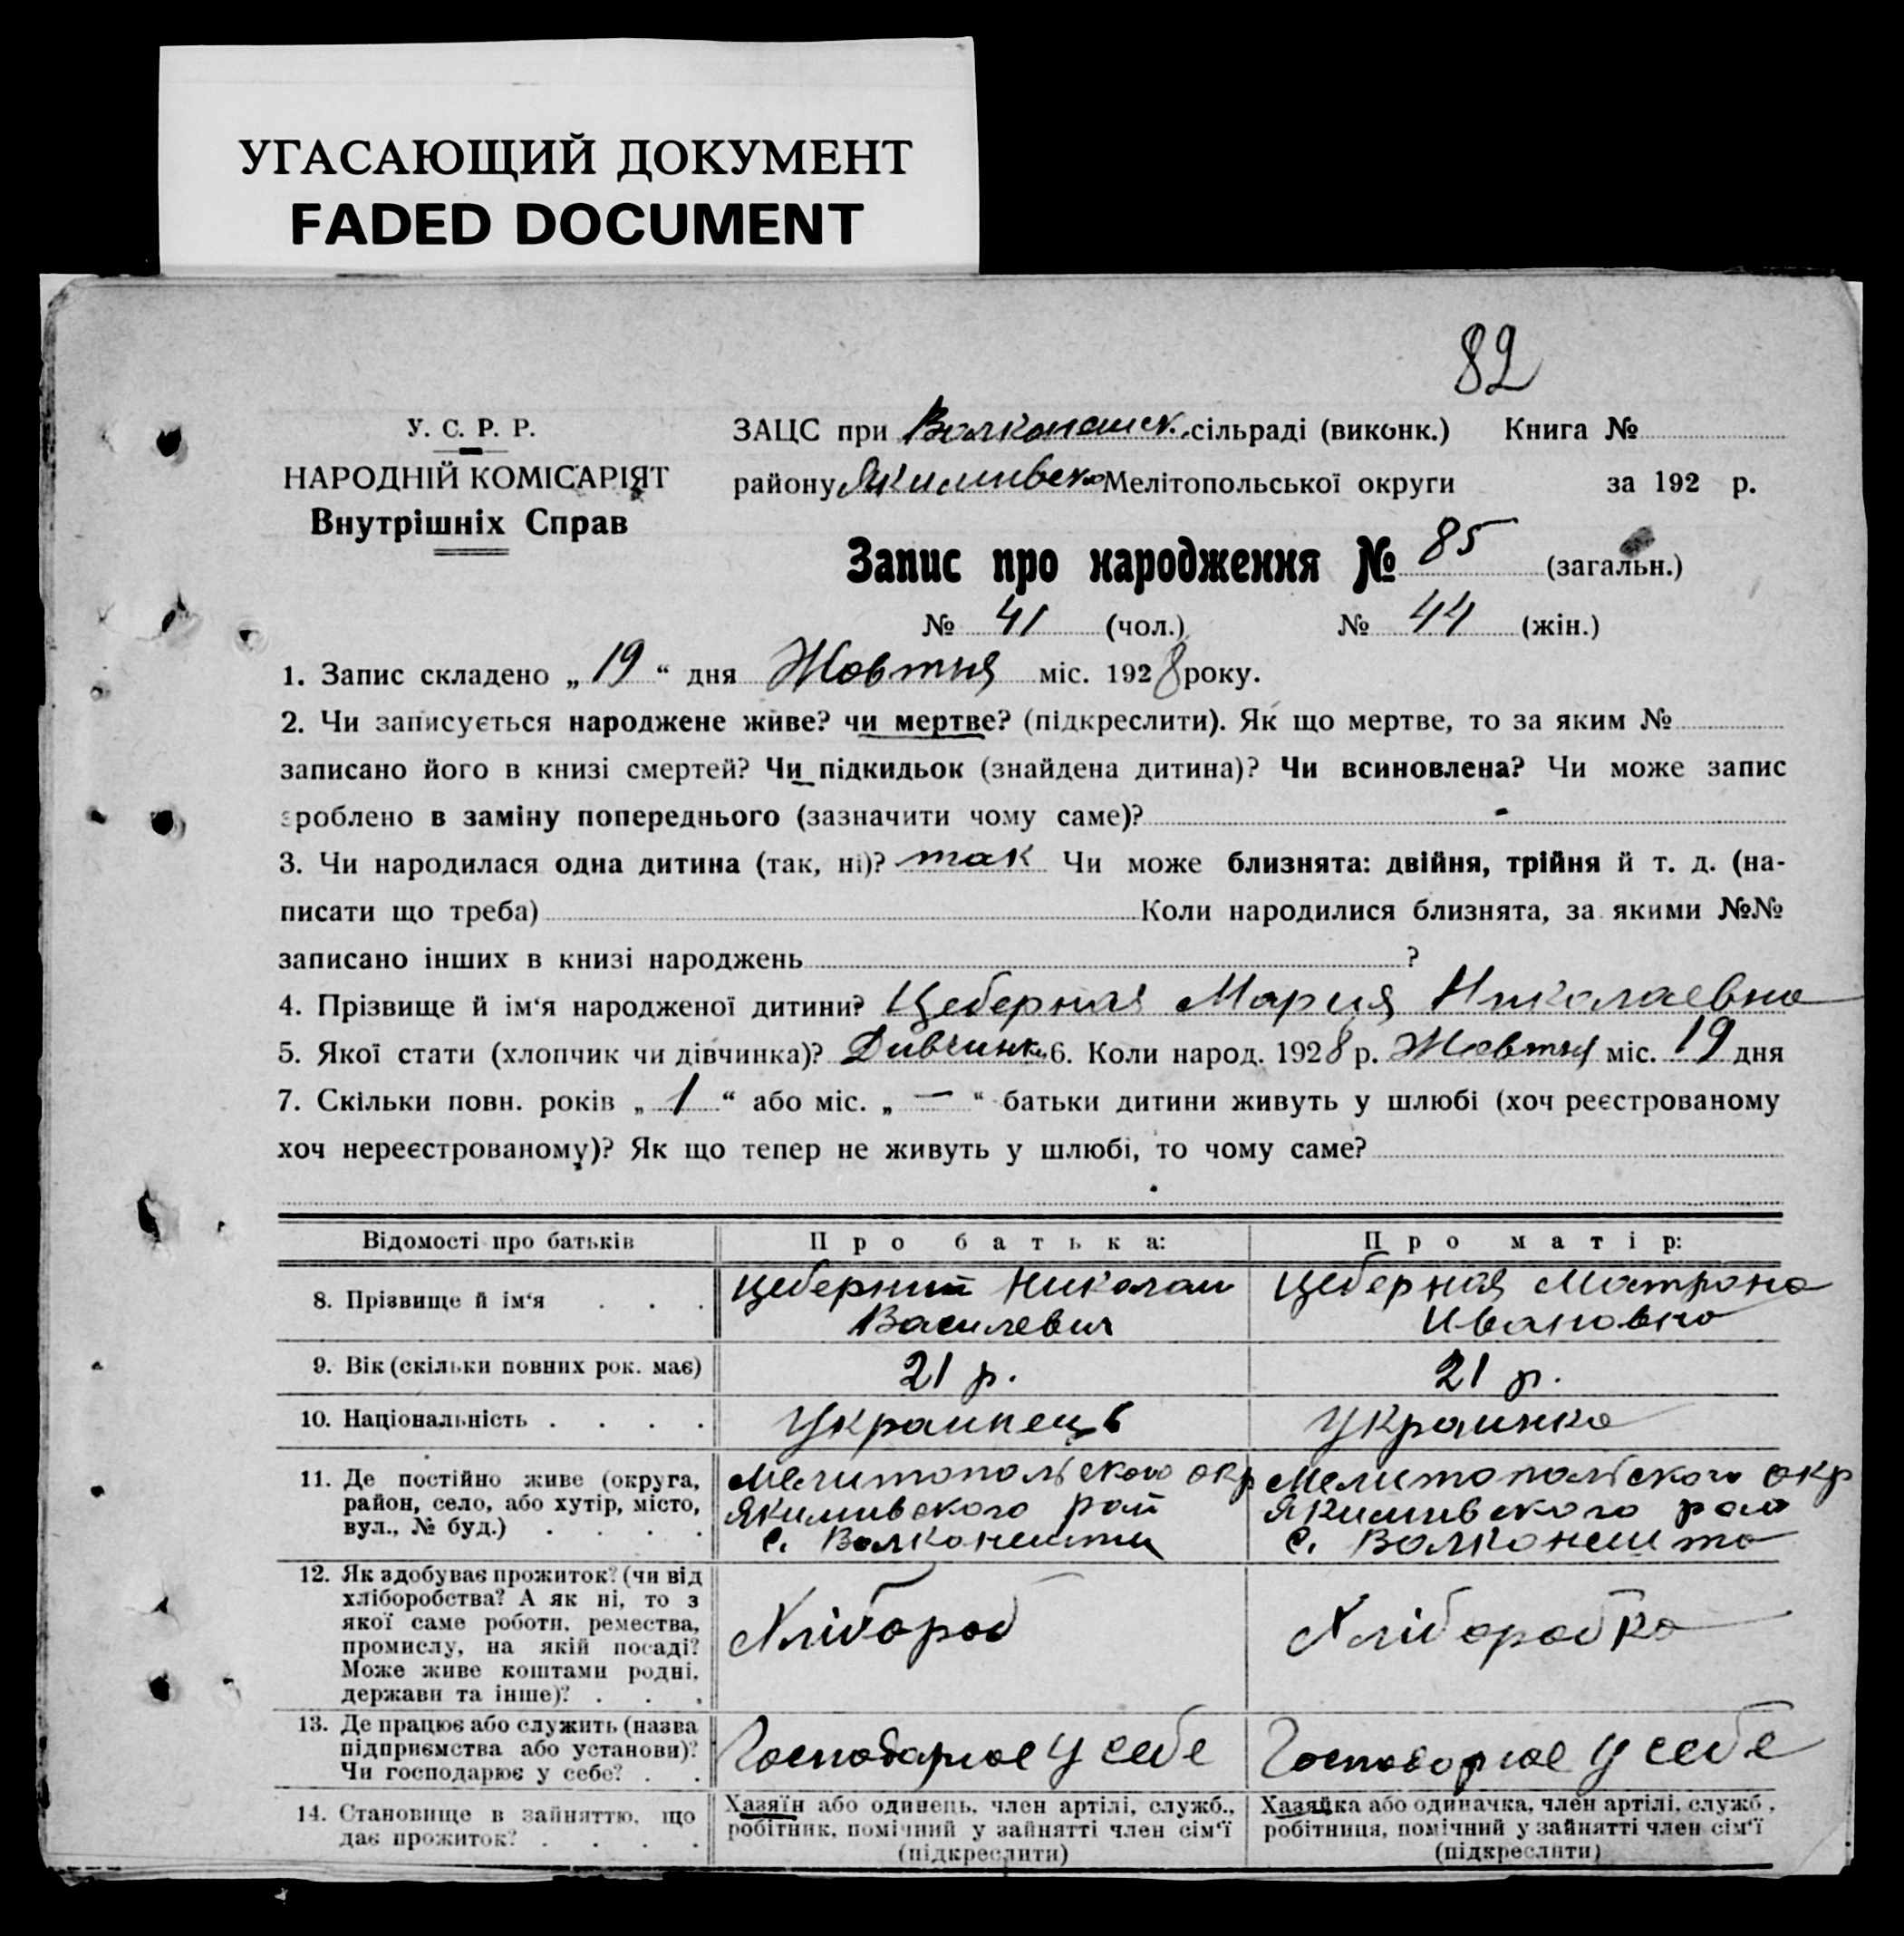 УГАСАЮЩИЙ ДОКУМЕНТ
FADED DOCUMENT
82
У. С. Р. Р.
НАРОДНІЙ КОМІСАРІЯТ
Внутрішніх Справ
ЗАЦС при Волконешт. сільраді (виконк.) Книга №
району Якимивськ Мелітопольської округи за 192 р.
Запис про народження № 85 (загальн.)
№ 41 (чол.) № 44 (жін.)
1. Запис складено „ 19 “ дня Жовтня міс. 1928 року.
2. Чи записується народжене живе? чи мертве? (підкреслити). Як що мертве, то за яким №
записано його в книзі смертей? Чи підкидьок (знайдена дитина)? Чи всиновлена? Чи може запис
зроблено в заміну попереднього (зазначити чому саме)?
3. Чи народилася одна дитина (так, ні)? так Чи може близнята: двійня, трійня й т. д. (на-
писати що треба) Коли народилися близнята, за якими №№
записано інших в книзі народжень ?
4. Прізвище й ім‘я народженої дитини? Цеберная Мария Николаевна
5. Якої стати (хлопчик чи дівчинка)? Дивчинка 6. Коли народ. 1928 р. Жовтня міс. 19 дня
7. Скільки повн. років „ 1 “ або міс. „ — “ батьки дитини живуть у шлюбі (хоч реєстрованому
хоч нереєстрованому)? Як що тепер не живуть у шлюбі, то чому саме?
Відомості про батьків
Про батька:
Про матір:
8. Прізвище й ім‘я . . .
Цеберний Николаи
Василевич
Цеберная Матрона
Ивановна
9. Вік (скільки повних рок. має)
21 р.
21 р.
10. Національність . . . .
Украинець
Украинка
11. Де постійно живе (округа,
район, село, або хутір, місто,
вул., № буд.) . . . .
Мелитопольского окр
Якимивского рай
с. Волконешти
Мелитопольского окр
Якимивского рай
с. Волконешта
12. Як здобуває прожиток? (чи від
хліборобства? А як ні, то з
якої саме роботи, ремества,
промислу, на якій посаді?
Може живе коштами родні,
держави та інше)? . . .
Хлібороб
Хлиборобка
13. Де працює або служить (назва
підприємства або установи)?
Чи господарює у себе? . .
Господарюе у себе
Господорюе у себе
14. Становище в зайняттю, що
дає прожиток? . . . .
Хазяїн або одинець, член артілі, служб.,
робітник, помічний у зайнятті член сім‘ї
(підкреслити)
Хазяйка або одиначка, член артілі, служб.,
робітниця, помічний у зайнятті член сім‘ї
(підкреслити)